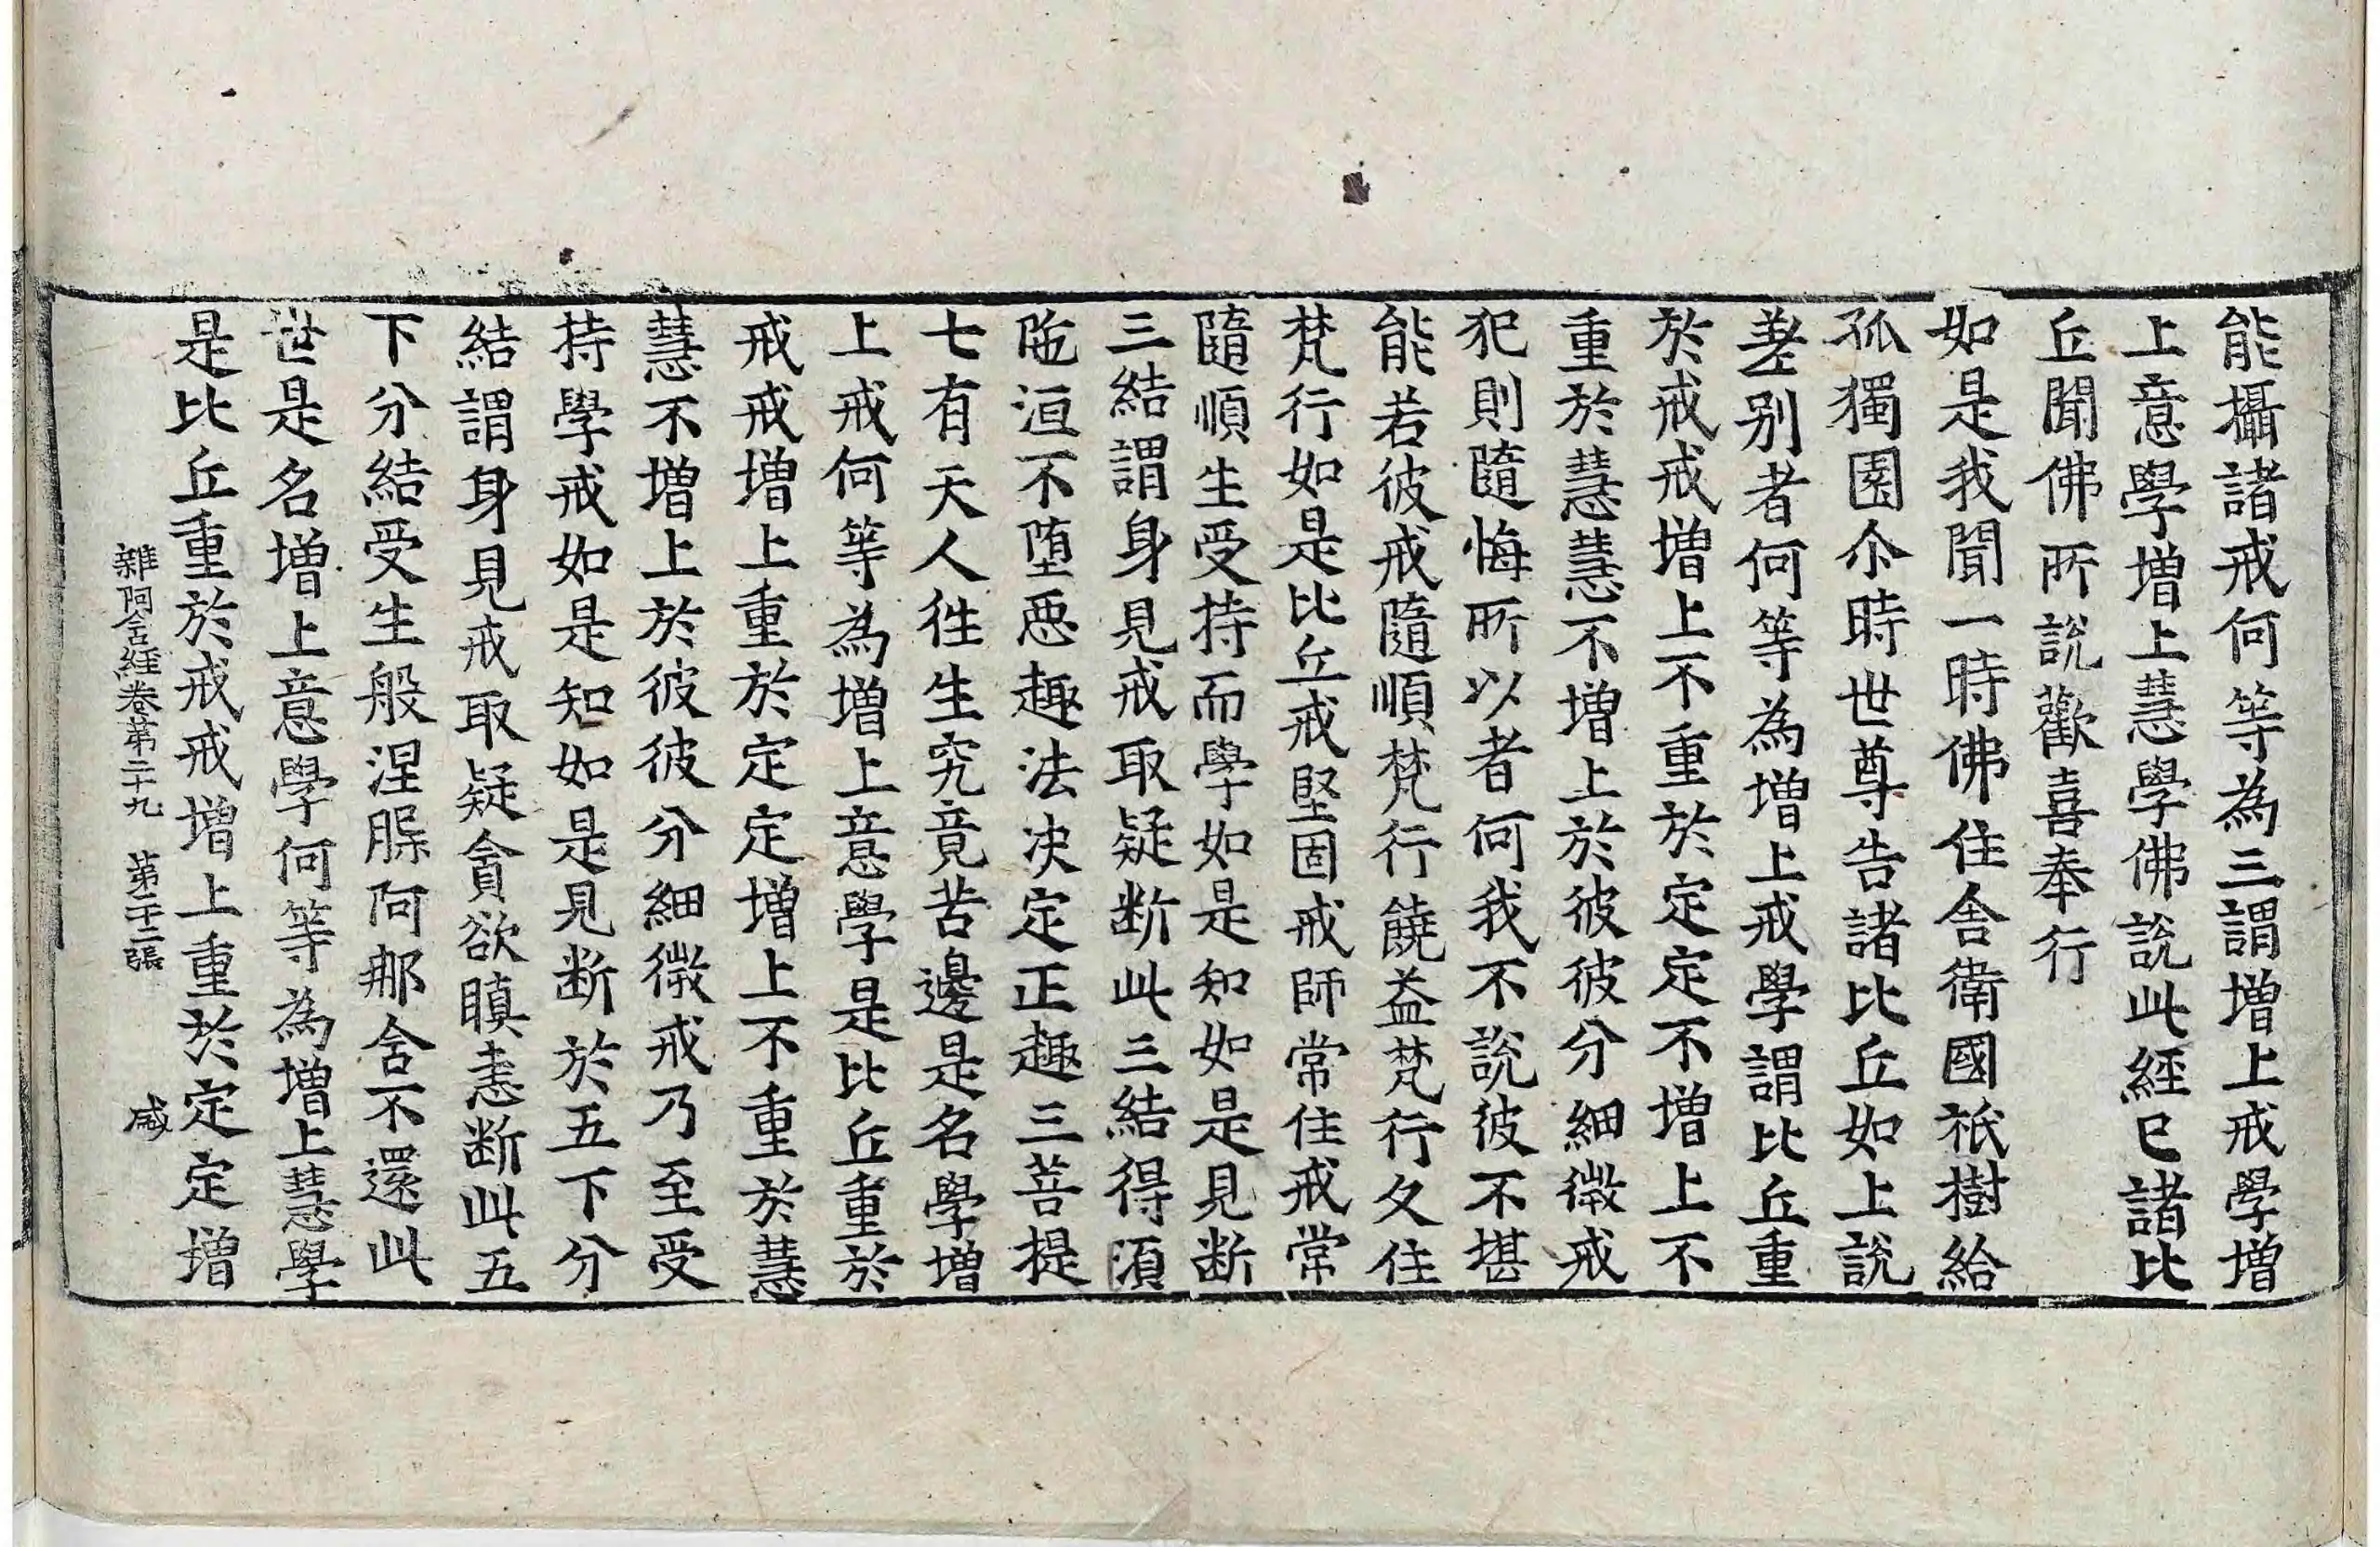 能攝諸戒何等為三謂增上戒學增
上意學增上慧學佛說此經已諸比
丘聞佛所說歡喜奉行
如是我聞一時佛住舍衛國祇樹給
孤獨園尒時世尊告諸比丘如上說
差別者何等為增上戒學謂比丘重
於戒戒增上不重於定定不增上不
重於慧慧不增上於彼彼分細微戒
犯則隨悔所以者何我不說彼不堪
能若彼戒隨順梵行饒益梵行久住
梵行如是比丘戒堅固戒師常住戒常
隨順生受持而學如是知如是見断
三結謂身見戒取疑断此三結得湏
陁洹不堕惡趣法决定正趣三菩提
七有天人徃生究竟苦邊是名學增
上戒何等為增上意學是比丘重於
戒戒增上重於定定增上不重於慧
慧不增上於彼彼分細微戒乃至受
持學戒如是知如是見断於五下分
結謂身見戒取疑貪欲瞋恚断此五
下分結受生般涅槃阿那含不還此
世是名增上意學何等為增上慧學
是比丘重於戒戒增上重於定定增
雜阿含經卷第二十九　第二十二張　咸